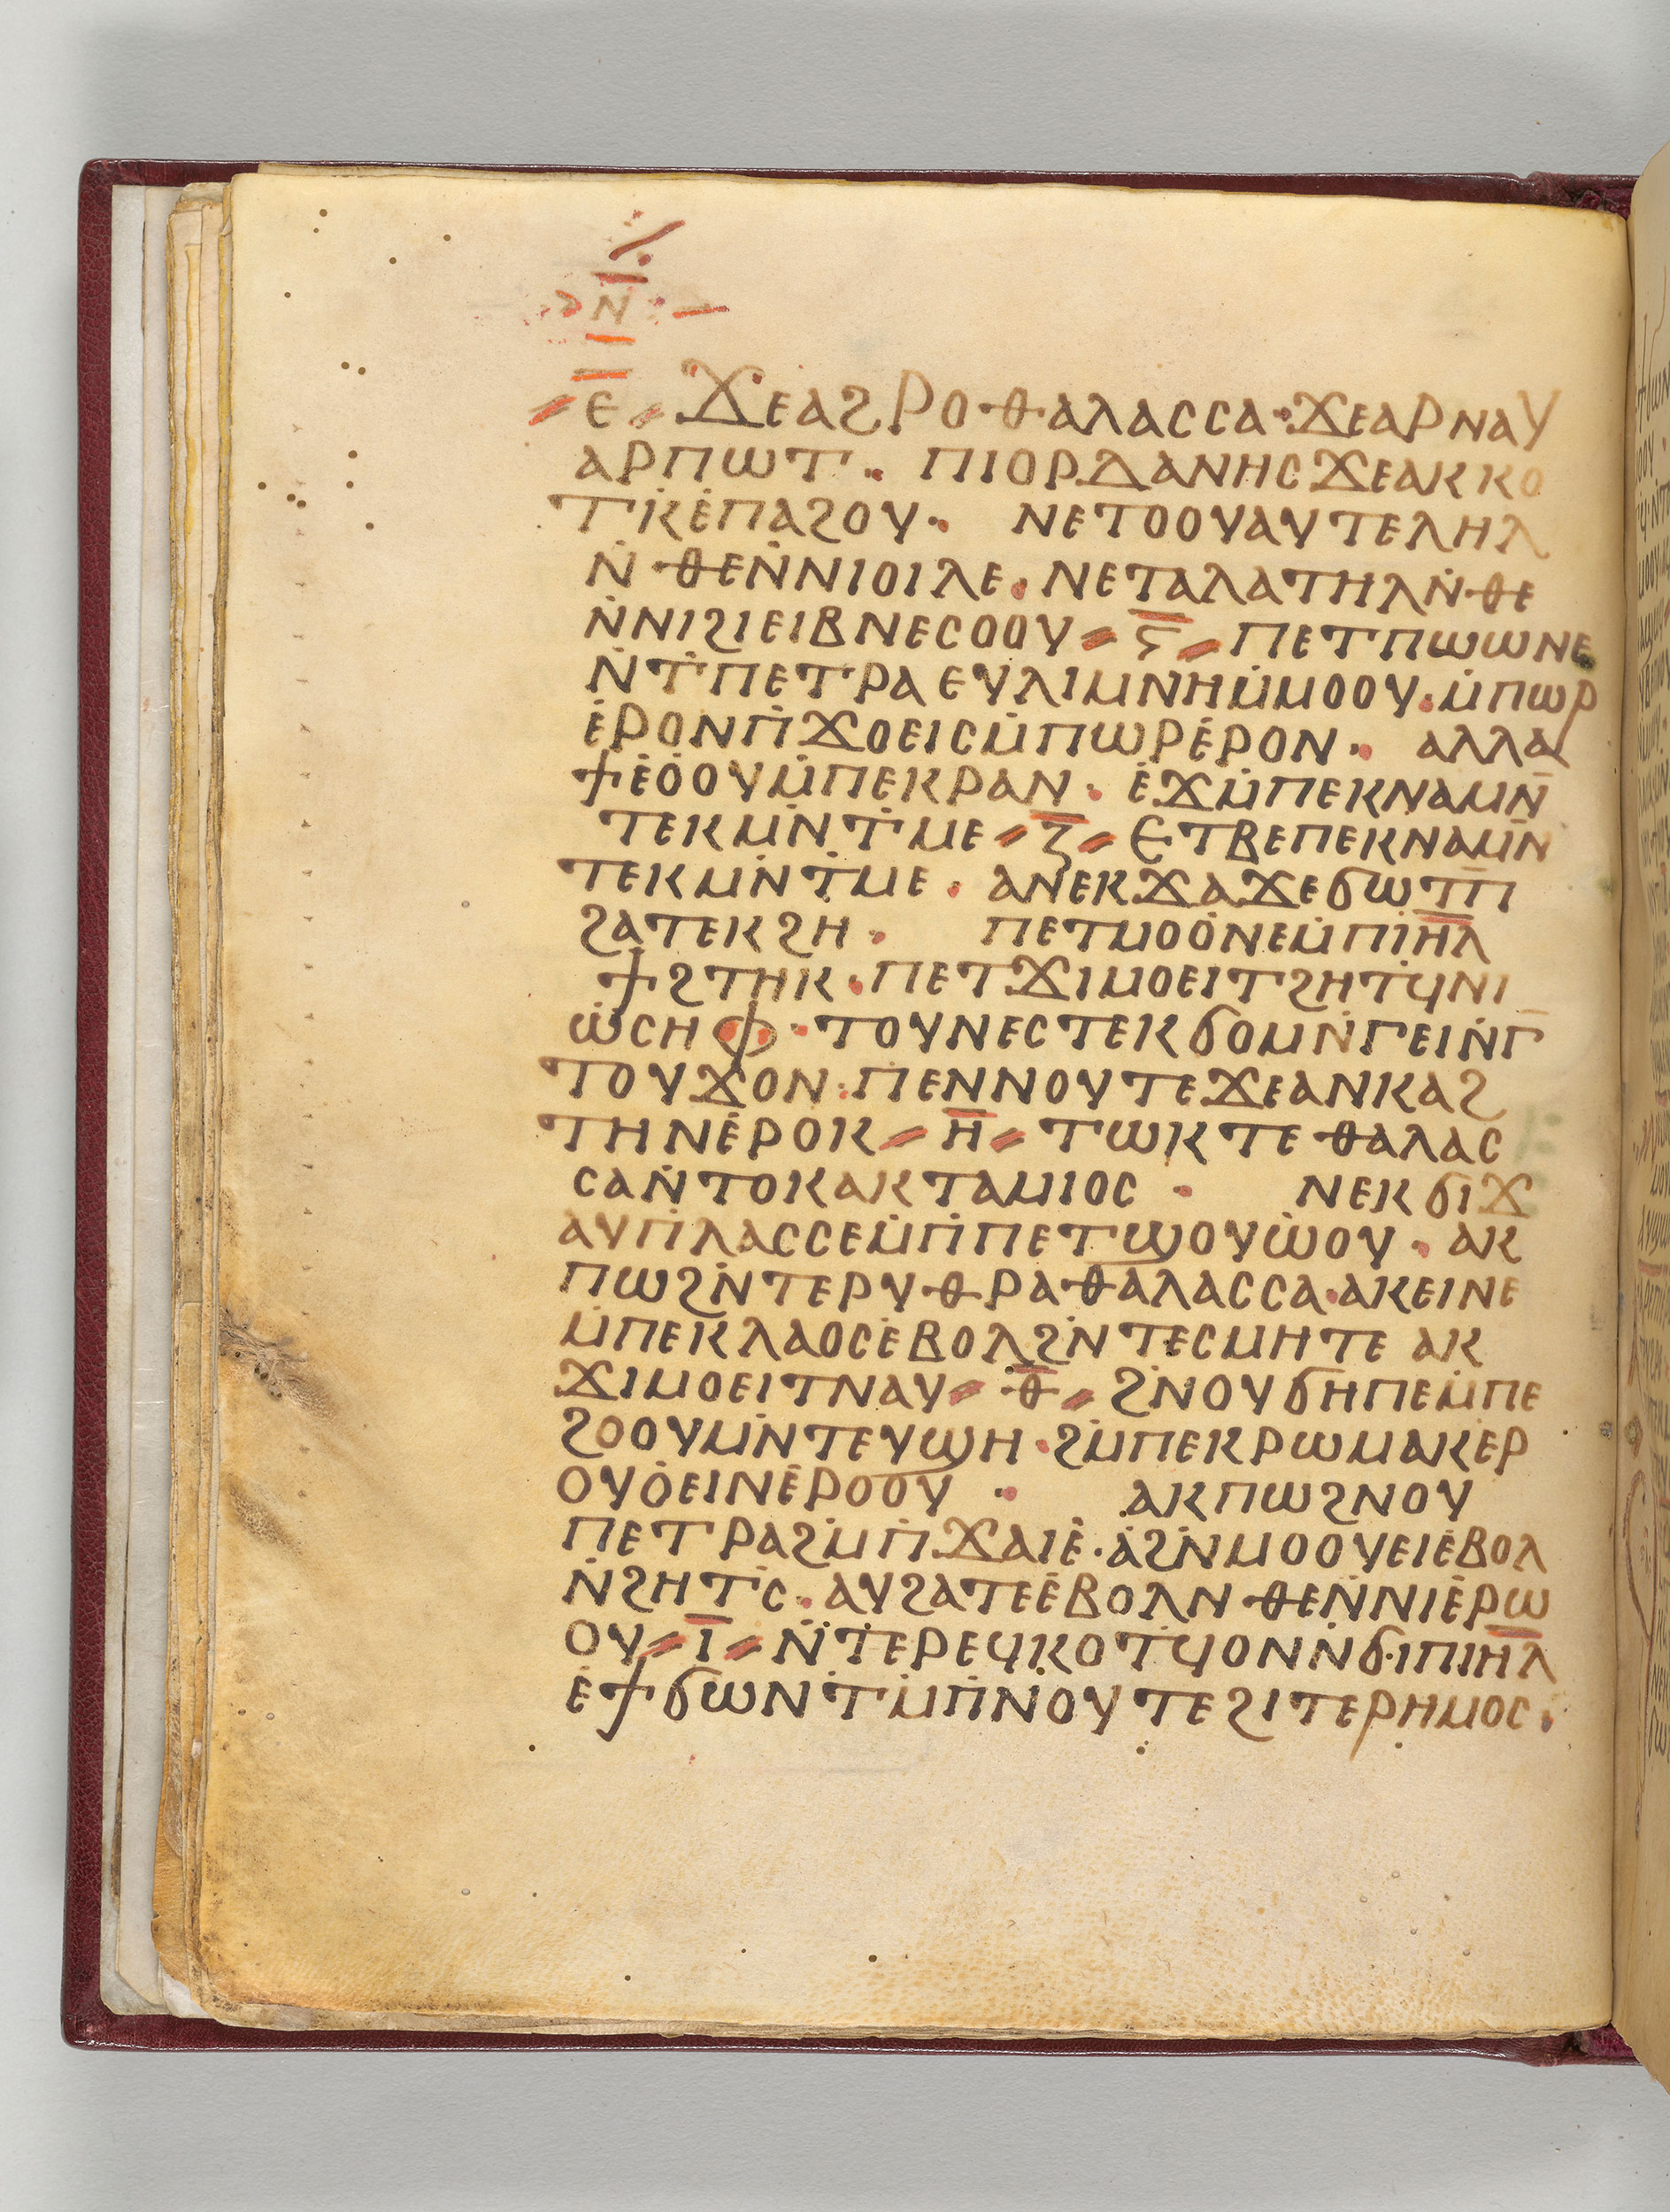 ⲛ̅
ⲉ̅ ϫⲉⲁϩⲣⲟ ⲑⲁⲗⲁⲥⲥⲁ· ϫⲉⲁⲣⲛⲁⲩ
ⲁⲣⲡⲱⲧ · ⲡⲓⲟⲣⲇⲁⲛⲏⲥ ϫⲉⲁⲕⲕⲟ
ⲧⲕ̇ⲉ̇ⲡⲁϩⲟⲩ· ⲛⲉⲧⲟⲟⲩⲁⲩⲧⲉⲗⲏⲗ
ⲛ̇ⲑⲉⲛ̇ⲛⲓⲟⲓⲗⲉ· ⲛⲉⲧⲁⲗⲁⲧⲏⲗⲛ̇ⲑⲉ
ⲛ̇ⲛⲓϩⲓⲉⲓⲃⲛⲉⲥⲟⲟⲩ ⲋ̅ ⲡⲉⲧⲡⲱⲱⲛⲉ
ⲛ̇ⲧ̇ⲡⲉⲧⲣⲁ ⲉⲩⲗⲓⲙⲛⲏⲙ̇ⲙⲟⲟⲩ· ⲙ̇ⲡⲱⲣ
ⲉ̇ⲣⲟⲛⲡ̇ϫⲟⲉⲓⲥⲙ̇ⲡⲱⲣⲉ̇ⲣⲟⲛ· ⲁⲗⲗⲁ
ϯⲉ̇ⲟ̇ⲟⲩⲙ̇ⲡⲉⲕⲣⲁⲛ· ⲉ̇ϫⲙ̇ⲡⲉⲕⲛⲁⲙⲛ̅
ⲧⲉⲕⲙⲛ̇ⲧ̇ⲙⲉ ⲍ̅ ⲉⲧⲃⲉⲡⲉⲕⲛⲁⲙⲛ̅
ⲧⲉⲕⲙⲛ̇ⲧ̇ⲙⲉ· ⲁⲛⲉⲕϫⲁϫⲉϭⲱⲧⲡ̅
ϩⲁⲧⲉⲕϩⲏ· ⲡⲉⲧⲙⲟⲟ̇ⲛⲉⲙ̇ⲡⲓ̅ⲏ̅ⲗ
ϯϩⲧⲏⲕ· ⲡⲉⲧϫⲓⲙⲟⲉⲓⲧϩⲏⲧϥ̇ⲛⲓ
ⲱ̇ⲥⲏⲫ· ⲧⲟⲩⲛⲉⲥⲧⲉⲕϭⲟⲙⲛ̇ⲅⲉⲓⲛ̇ⲅ̅
ⲧⲟⲩϫⲟⲛ· ⲡⲉⲛⲛⲟⲩⲧⲉϫⲉⲁⲛⲕⲁϩ
ⲧⲏⲛⲉ̇ⲣⲟⲕ ⲏ̅ ⲧⲱⲕⲧⲉ ⲑⲁⲗⲁⲥ
ⲥⲁⲛ̇ⲧⲟⲕⲁⲕⲧⲁⲙⲓⲟⲥ · ⲛⲉⲕϭⲓϫ
ⲁⲩⲡ̇ⲗⲁⲥⲥⲉⲙ̇ⲡ̇ⲡⲉⲧϣⲟⲩⲱ̇ⲟⲩ· ⲁⲕ
ⲡⲱϩⲛ̇ⲧⲉⲣⲩⲑⲣⲁⲑⲁⲗⲁⲥⲥⲁ· ⲁⲕⲉⲓⲛⲉ
ⲙ̇ⲡⲉⲕⲗⲁⲟⲥⲉ̇ⲃⲟⲗϩⲛ̇ⲧⲉⲥⲙⲏⲧⲉ ⲁⲕ
ϫⲓⲙⲟⲉⲓⲧⲛⲁⲩ ⲑ̅ ϩⲛ̇ⲟⲩϭⲏⲡⲉⲙ̇ⲡⲉ
ϩⲟⲟⲩⲙⲛ̇ⲧⲉⲩϣⲏ· ϩⲙ̇ⲡⲉⲕⲣⲱⲙⲁⲕⲉⲣ
ⲟⲩⲟ̇ⲉⲓⲛⲉ̇ⲣⲟⲟⲩ · ⲁⲕⲡⲱϩⲛⲟⲩ
ⲡⲉⲧⲣⲁϩⲙ̇ⲡ̇ϫⲁⲓⲉ̇· ⲁ̇ϩⲛ̇ⲙⲟⲟⲩⲉⲓⲉ̇ⲃⲟⲗ
ⲛ̇ϩⲏⲧⲥ̇· ⲁⲩϩⲁⲧⲉⲉ̇ⲃⲟⲗⲛ ⲑⲉⲛ̇ⲛⲓⲉ̇ⲣⲱ
ⲟⲩ ⲓ̅ ⲛ̇ⲧⲉⲣⲉϥⲕⲟⲧϥⲟⲛⲛ̇ϭⲓⲡⲓ̅ⲏ̅ⲗ
ⲉ̇ϯϭⲱⲛⲧ̇ⲙ̇ⲡ̇ⲛⲟⲩⲧⲉϩⲓⲧⲉⲣⲏⲙⲟⲥ·